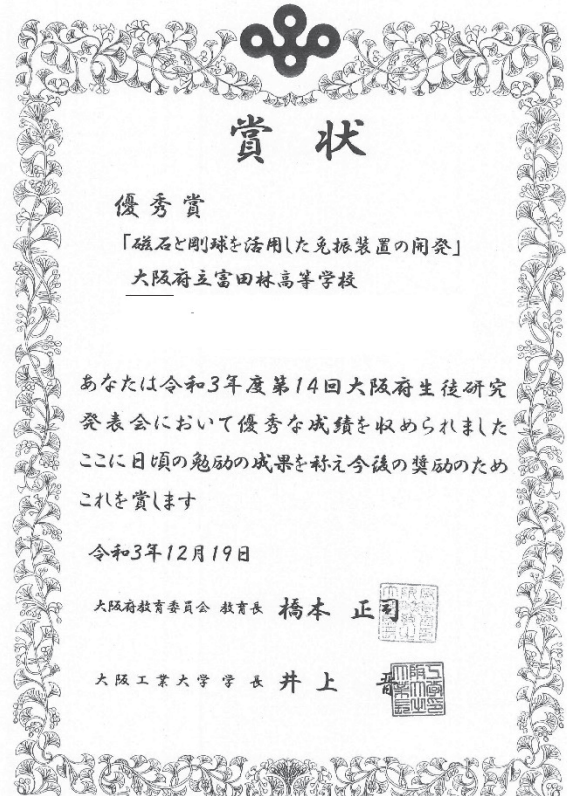 賞状
優秀賞
「磁石と剛球を活用した免振装置の開発」
大阪府立富田林高等学校
あなたは令和3年度第14回大阪府生徒研究
発表会において優秀な成績を収められました
ここに日頃の勉励の成果を称え今後の奨励のため
これを賞します
令和3年12月19日
大阪府教育委員会 教育長 橋本 正司
大阪工業大学学長 井上 晋